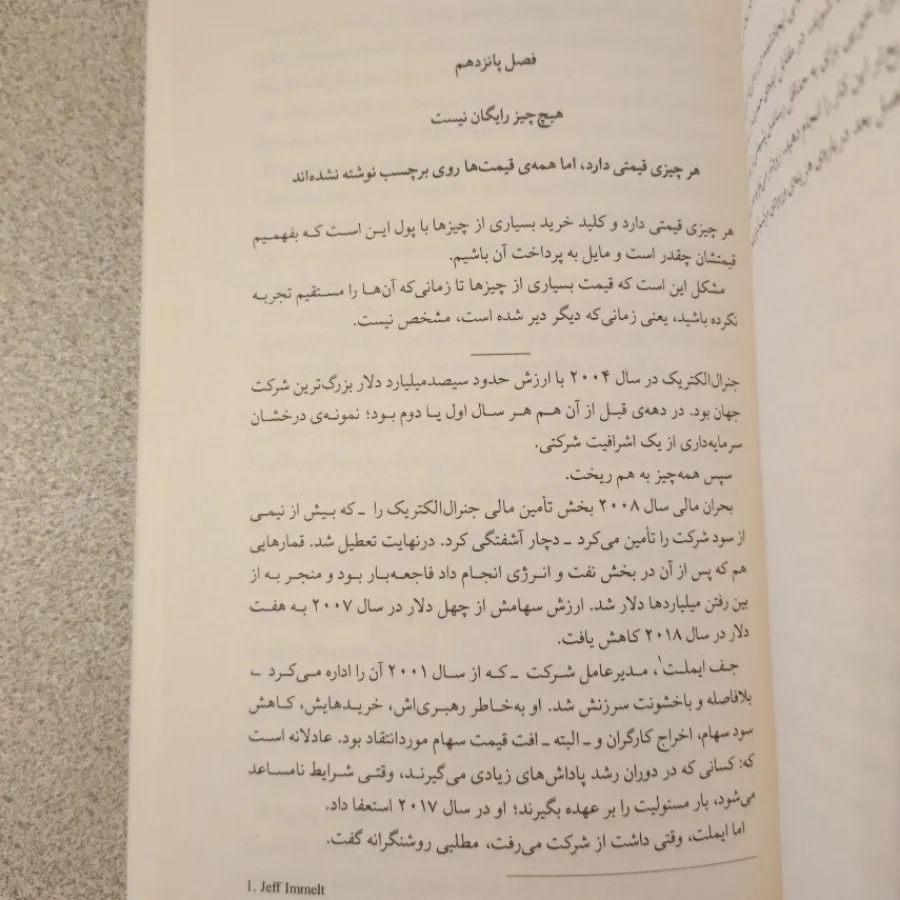 فصل پانزدهم
هیچ‌چیز رایگان نیست
هر چیزی قیمتی دارد، اما همه‌ی قیمت‌ها روی برچسب نوشته نشده‌اند
هر چیزی قیمتی دارد و کلید خرید بسیاری از چیزها با پول این است که بفهمیم
قیمتشان چقدر است و مایل به پرداخت آن باشیم.
مشکل این است که قیمت بسیاری از چیزها تا زمانی‌که آن‌ها را مستقیم تجربه
نکرده باشید، یعنی زمانی‌که دیگر دیر شده است، مشخص نیست.
جنرال‌الکتریک در سال ۲۰۰۴ با ارزش حدود سیصدمیلیارد دلار بزرگ‌ترین شرکت
جهان بود. در دهه‌ی قبل از آن هم هر سال اول یا دوم بود؛ نمونه‌ی درخشان
سرمایه‌داری از یک اشرافیت شرکتی.
سپس همه‌چیز به هم ریخت.
بحران مالی سال ۲۰۰۸ بخش تأمین مالی جنرال‌الکتریک را ـ که بیش از نیمی
از سود شرکت را تأمین می‌کرد ـ دچار آشفتگی کرد. درنهایت تعطیل شد. قمارهایی
هم که پس از آن در بخش نفت و انرژی انجام داد فاجعه‌بار بود و منجر به از
بین رفتن میلیاردها دلار شد. ارزش سهامش از چهل دلار در سال ۲۰۰۷ به هفت
دلار در سال ۲۰۱۸ کاهش یافت.
جف ایملت۱، مدیرعامل شرکت ـ که از سال ۲۰۰۱ آن را اداره می‌کرد ـ
بلافاصله و باخشونت سرزنش شد. او به‌خاطر رهبری‌اش، خریدهایش، کاهش
سود سهام، اخراج کارگران و ـ البته ـ افت قیمت سهام موردانتقاد بود. عادلانه است
که: کسانی که در دوران رشد پاداش‌های زیادی می‌گیرند، وقتی شرایط نامساعد
می‌شود، بار مسئولیت را بر عهده بگیرند؛ او در سال ۲۰۱۷ استعفا داد.
اما ایملت، وقتی داشت از شرکت می‌رفت، مطلبی روشنگرانه گفت.
1. Jeff Immelt